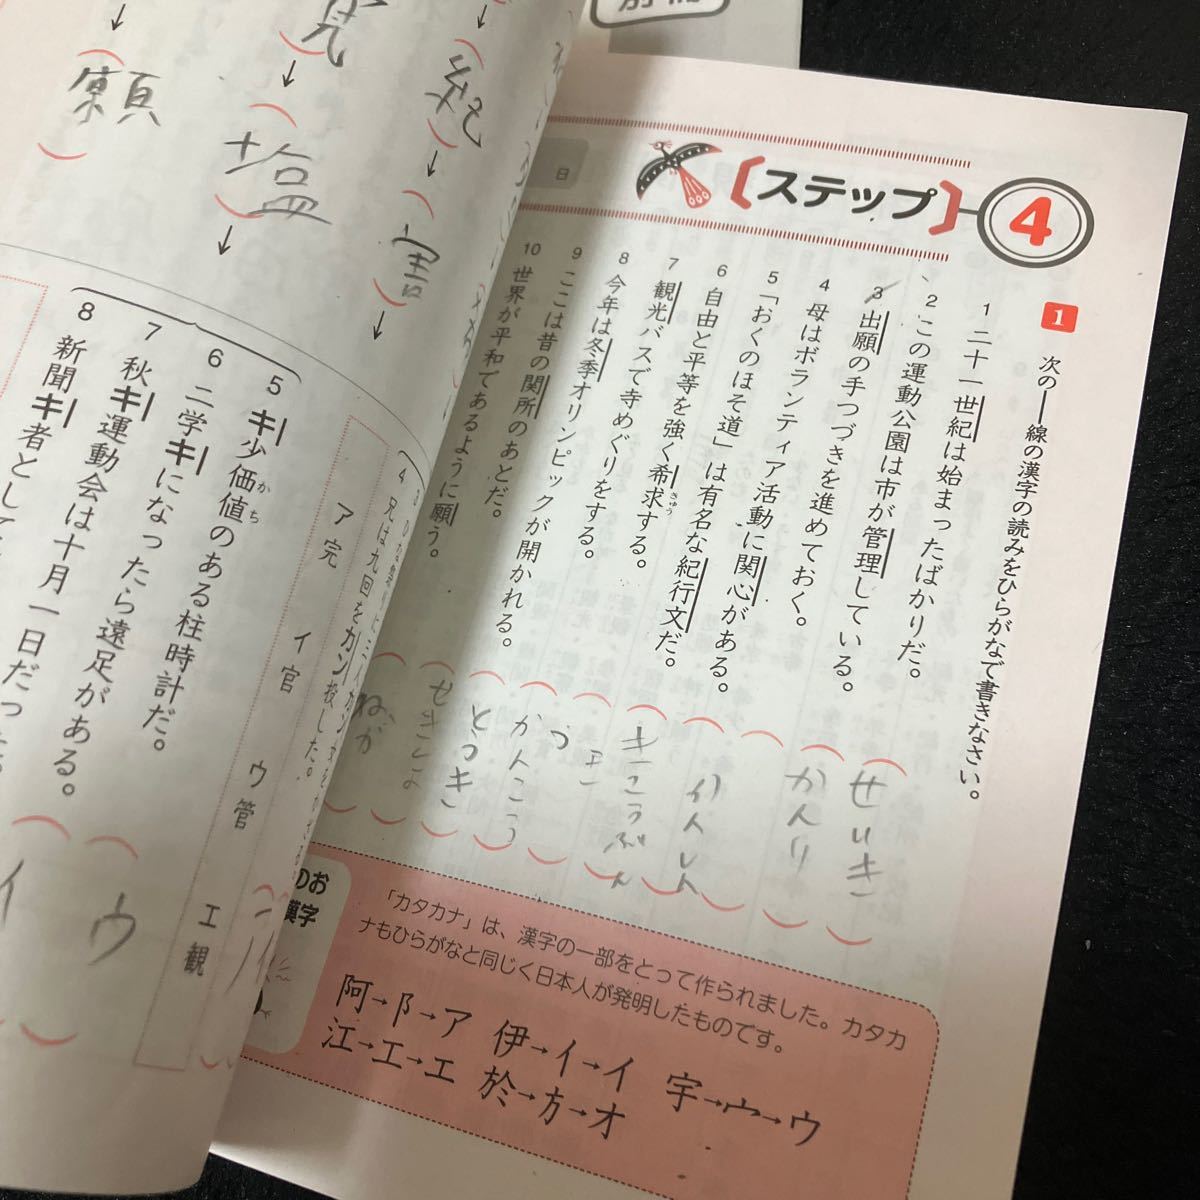 日
ステップ
4
1 次の――線の漢字の読みをひらがなで書きなさい。
1 二十一世紀は始まったばかりだ。
せいき
2 この運動公園は市が管理している。
かんり
3 出願の手つづきを進めておく。
4 母はボランティア活動に関心がある。
かんしん
5 「おくのほそ道」は有名な紀行文だ。
きこうぶん
6 自由と平等を強く希求する。
きゅう
7 観光バスで寺めぐりをする。
かんこう
8 今年は冬季オリンピックが開かれる。
とうき
9 ここは昔の関所のあとだ。
せきしょ
10 世界が平和であるように願う。
ねが
のお
漢字
「カタカナ」は、漢字の一部をとって作られました。カタカ
ナもひらがなと同じく日本人が発明したものです。
阿→阝→ア 伊→イ→イ 宇→宀→ウ
江→エ→エ 於→方→オ
紀
↓
害
↓
↓
塩
↓
↓
願
4 兄は九回をカン投した。
ア 完 イ 官 ウ 管 エ 観
5 キ少価値のある柱時計だ。
かち
6 二学キになったら遠足がある。
7 秋キ運動会は十月一日だった
8 新聞キ者として
ウ
イ